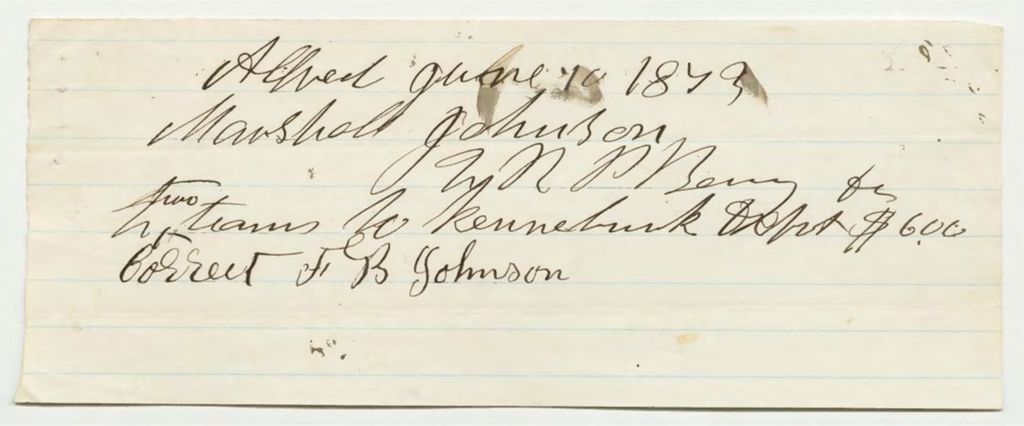 Alfred June 10 1873
Marshall Johnson
To N P Berry Dr
two
to teams to Kennebunk Depot $6.00
Correct F B Johnson